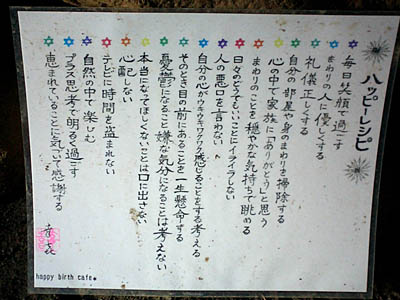 ハッピーレシピ
毎日笑顔で過ごす
まわりの人に優しくする
礼儀正しくする
自分の部屋や身のまわりを掃除する
心の中で家族に「ありがとう」と思う
まわりのことを穏やかな気持ちで眺める
日々のどうでもいいことにイライラしない
人の悪口を言わない
自分の心がウキウキワクワク感じることをする考える
そのとき目の前にあることを一生懸命する
憂鬱になること嫌な気分になることは考えない
本当になってほしくないことは口に出さない
心配しない
テレビに時間を盗まれない
自然の中で楽しむ
プラス思考で明るく過ごす
恵まれていることに気づいて感謝する
happy birth cafe